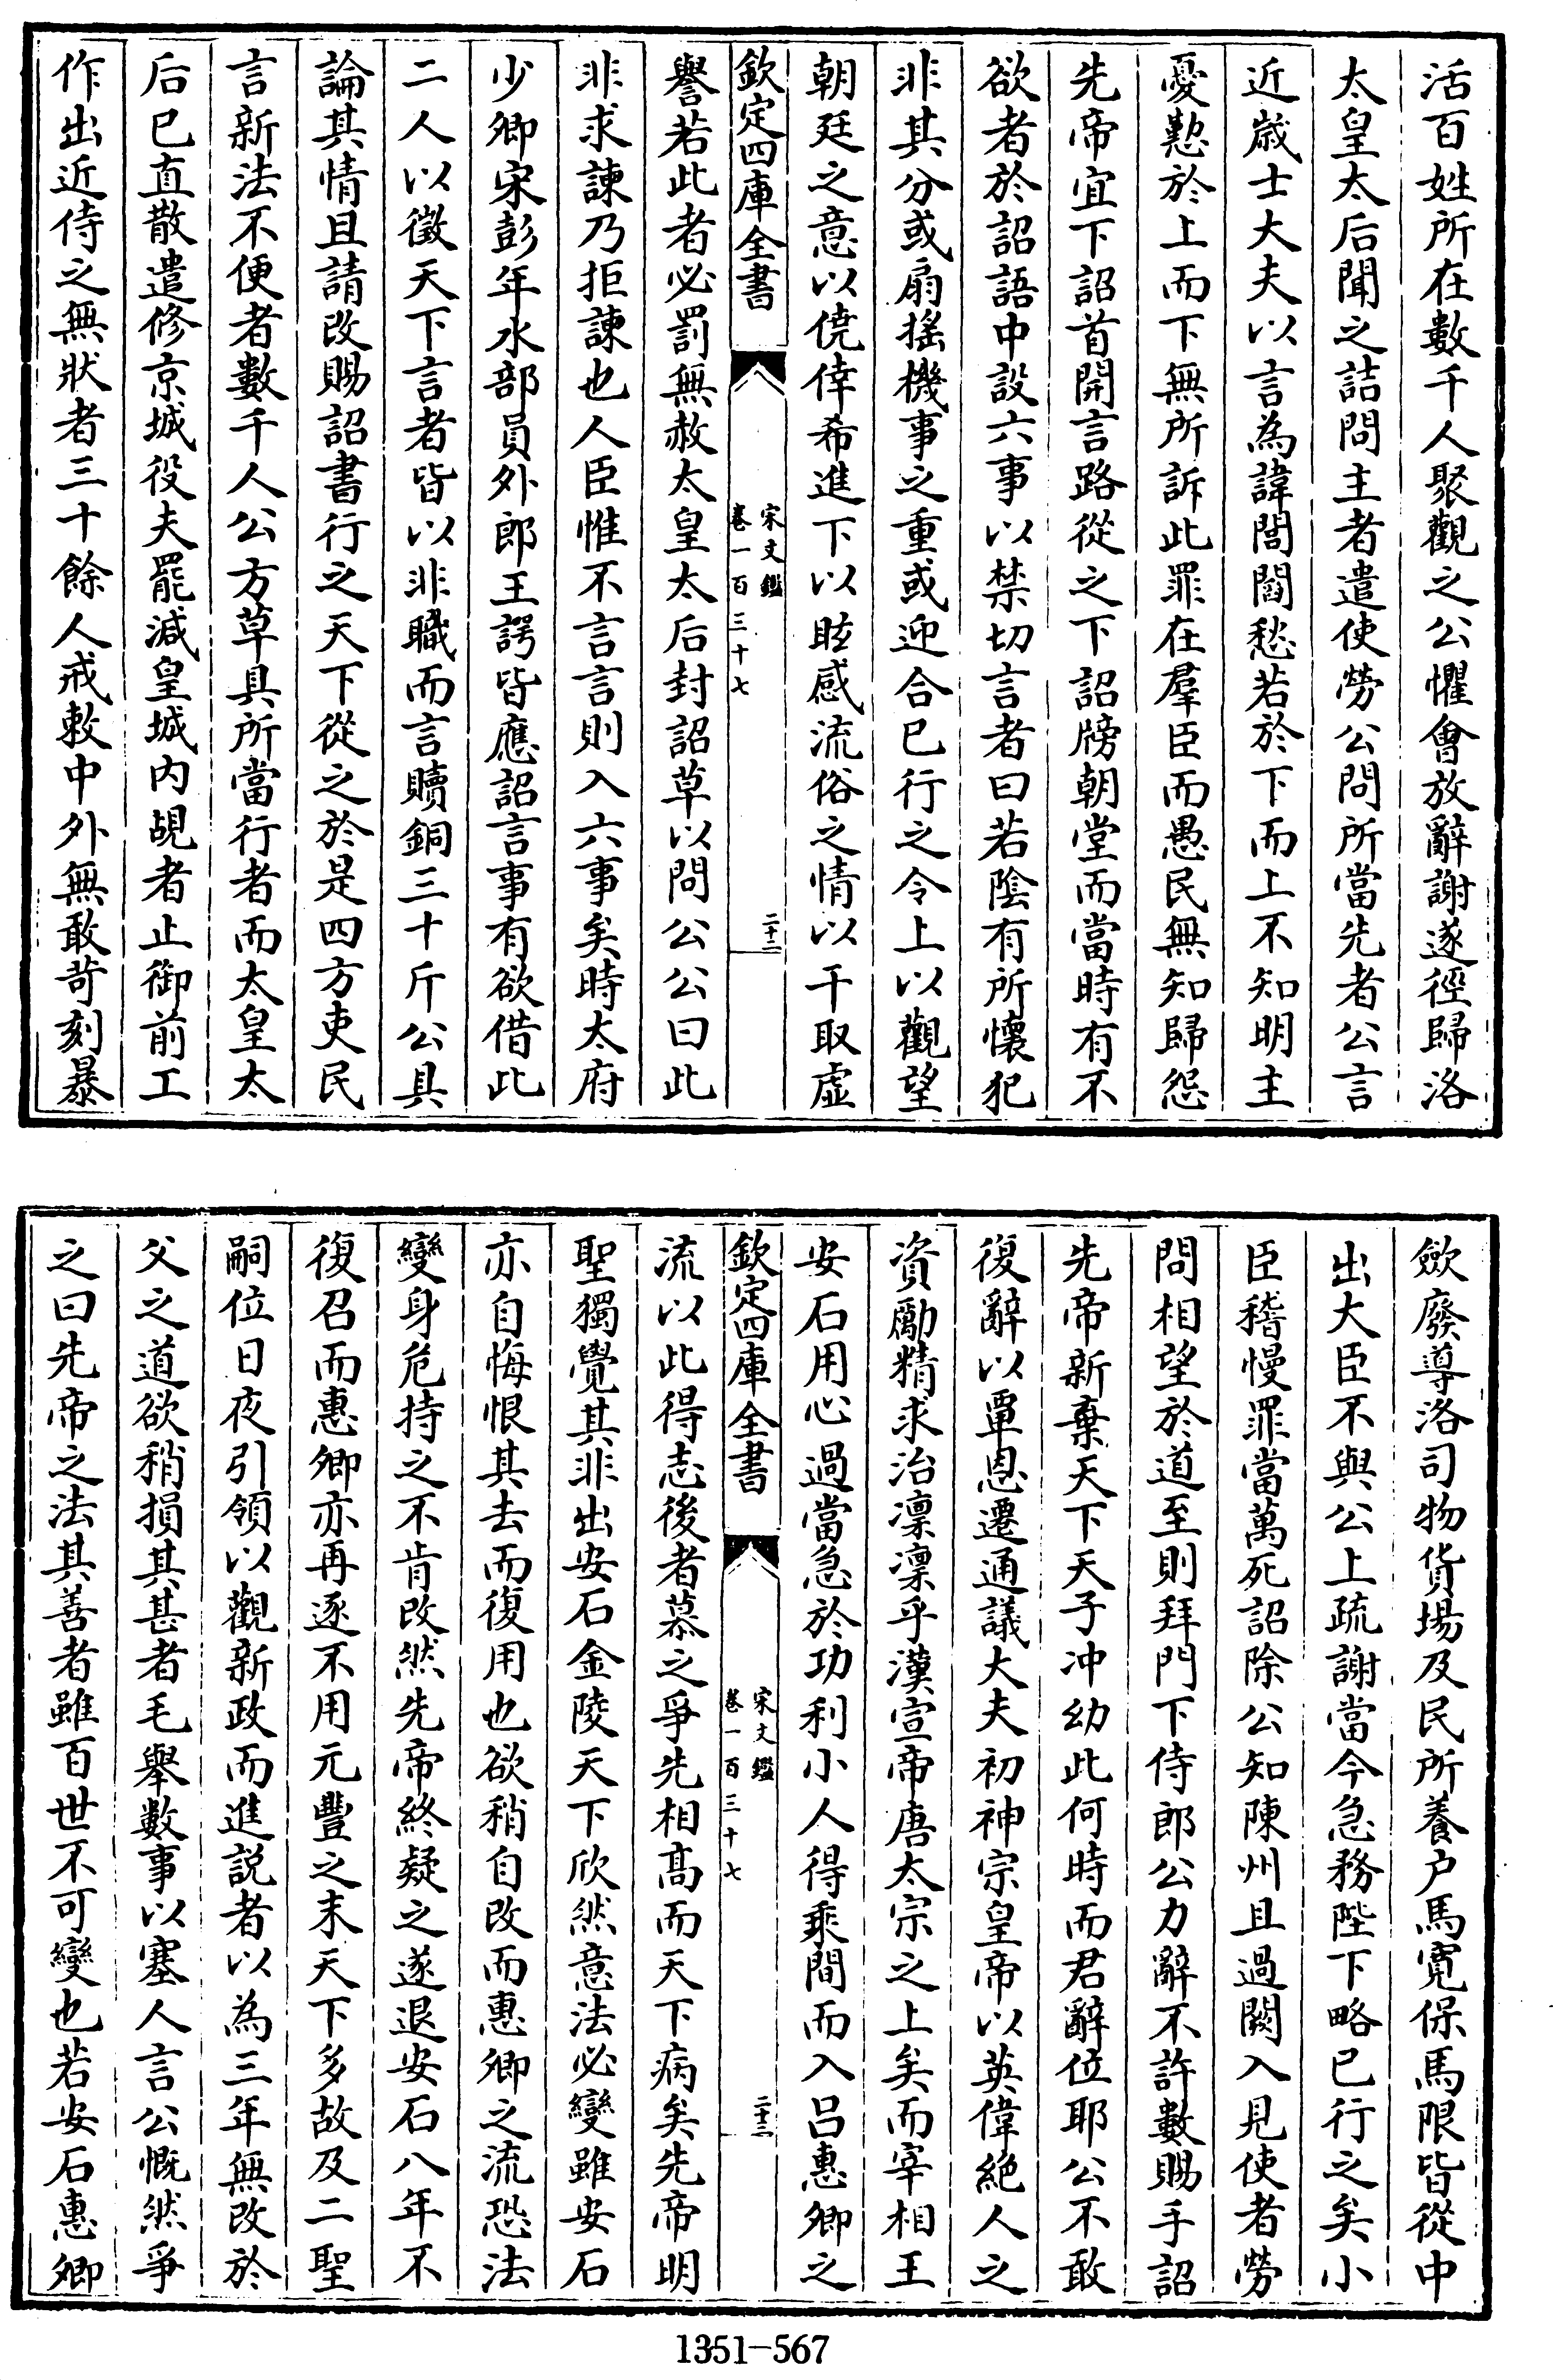 活百姓所在數千人聚觀之公懼㑹放辭謝遂徑歸洛
太皇太后聞之詰問主者遣使勞公問所當先者公言
近嵗士大夫以言為諱閭閻愁若於下而上不知明主
憂懃於上而下無所訴此罪在羣臣而愚民無知歸怨
先帝宜下詔首開言路從之下詔牓朝堂而當時有不
欲者於詔語中設六事以禁切言者曰若陰有所懷犯
非其分或扇搖機事之重或迎合已行之令上以觀望
朝廷之意以僥倖希進下以眩惑流俗之情以干取虛
欽定四庫全書
宋文鑑
卷一百三十七
二十二
譽若此者必罰無赦太皇太后封詔草以問公公曰此
非求諫乃拒諫也人臣惟不言言則入六事矣時太府
少卿宋彭年水部員外郎王諤皆應詔言事有欲借此
二人以徵天下言者皆以非職而言贖銅三十斤公具
論其情且請改賜詔書行之天下從之於是四方吏民
言新法不便者數千人公方草具所當行者而太皇太
后已直散遣修京城役夫罷減皇城内覘者止御前工
作出近侍之無狀者三十餘人戒敕中外無敢苛刻暴
歛廢導洛司物貨場及民所養户馬寛保馬限皆從中
出大臣不與公上疏謝當今急務陛下略已行之矣小
臣稽慢罪當萬死詔除公知陳州且過闕入見使者勞
問相望於道至則拜門下侍郎公力辭不許數賜手詔
先帝新棄天下天子冲幼此何時而君辭位耶公不敢
復辭以覃恩遷通議大夫初神宗皇帝以英偉絶人之
資勵精求治凛凛乎漢宣帝唐太宗之上矣而宰相王
安石用心過當急於功利小人得乘間而入吕惠卿之
欽定四庫全書
宋文鑑
卷一百三十七
二十三
流以此得志後者慕之爭先相髙而天下病矣先帝明
聖獨覺其非出安石金陵天下欣然意法必變雖安石
亦自悔恨其去而復用也欲稍自改而惠卿之流恐法
變身危持之不肯改然先帝終疑之遂退安石八年不
復召而惠卿亦再逐不用元豐之末天下多故及二聖
嗣位日夜引領以觀新政而進説者以為三年無改於
父之道欲稍損其甚者毛舉數事以塞人言公慨然爭
之曰先帝之法其善者雖百世不可變也若安石惠卿
1351-567